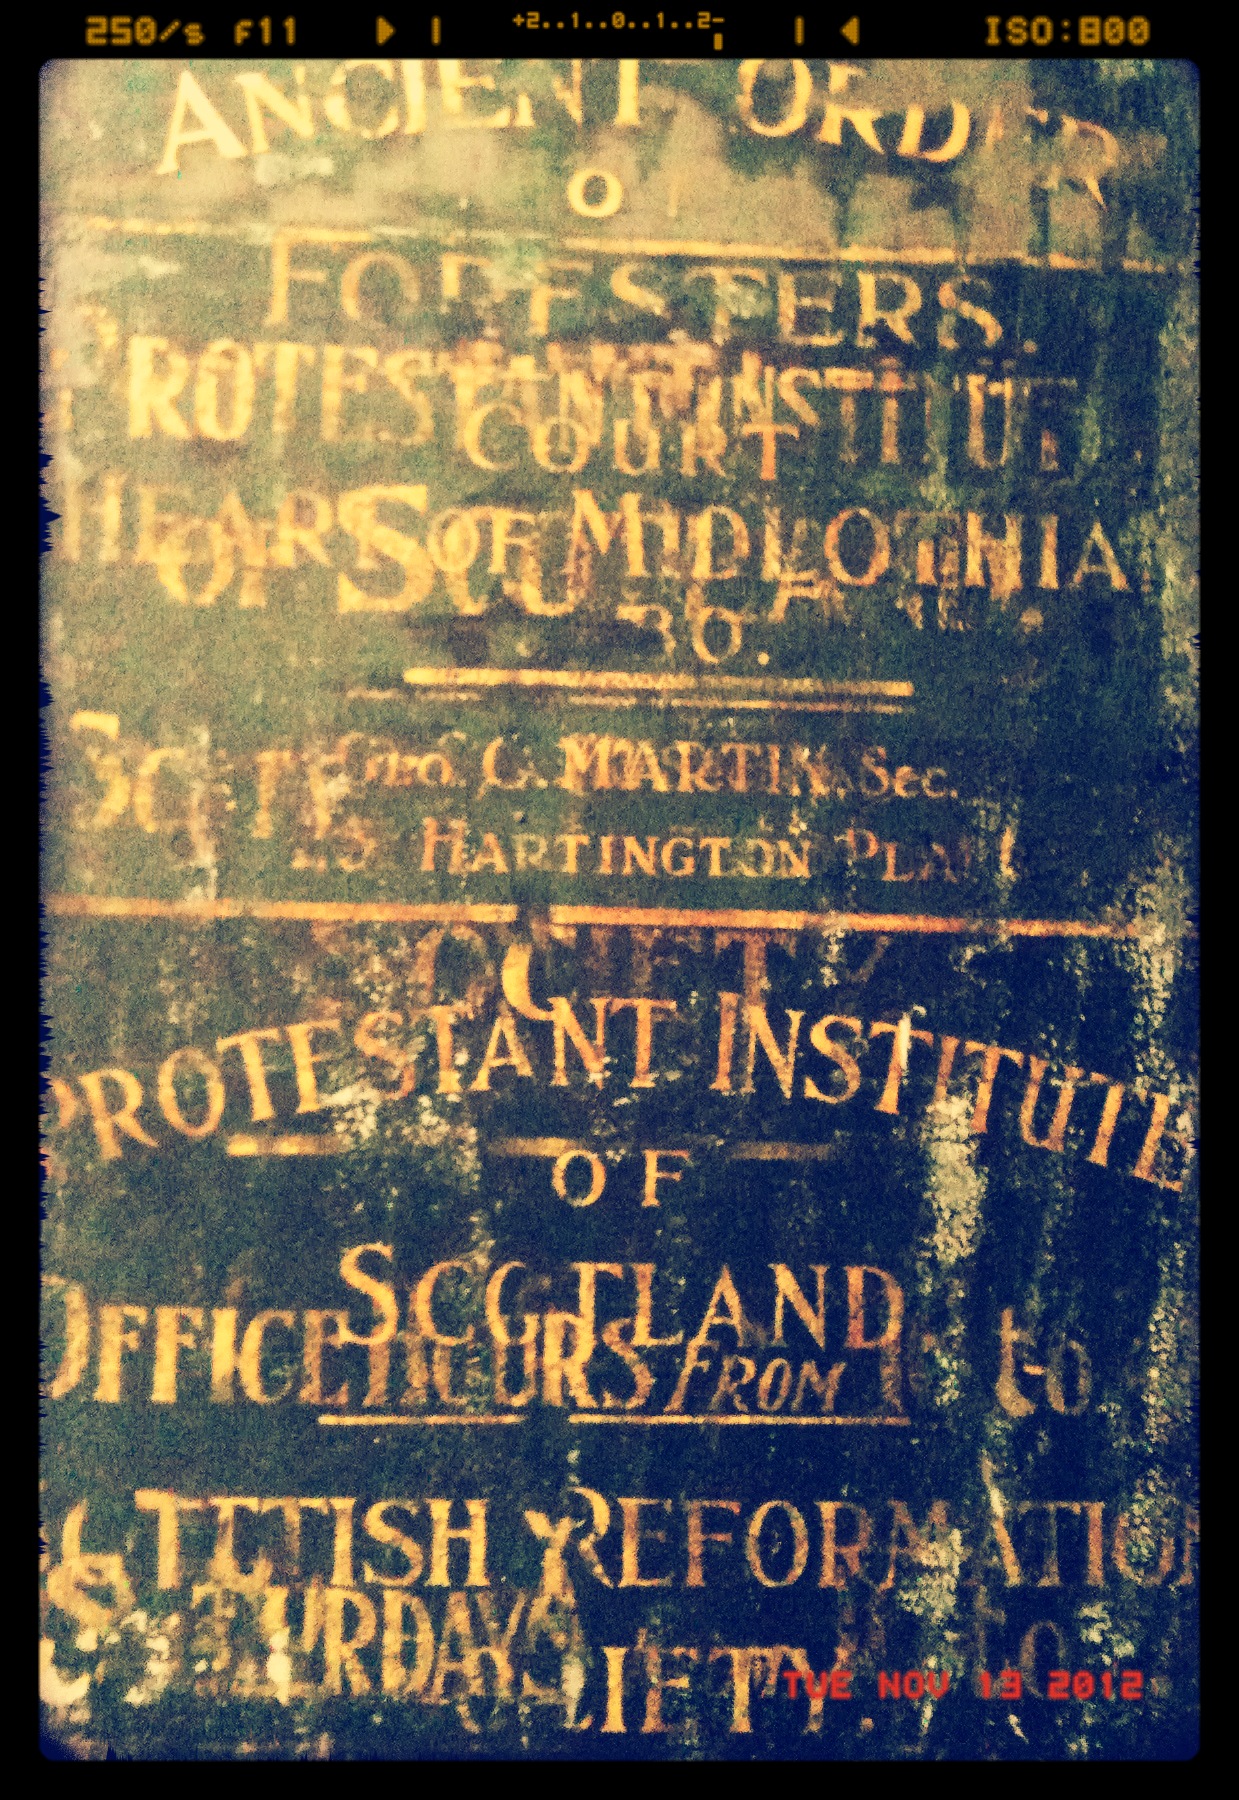 250/s f11 +2..1..0..1..2- ISO:800
ANCIENT ORDER
O
FORESTERS.
PROTESTANT INSTITUTE
COURT
HEART OF MIDLOTHIA
OF SCO
30.
Geo. C. MARTIN, Sec.
HARTINGTON PLA
SOCIETY
PROTESTANT INSTITUTE
OF
SCOTLAND
OFFICE HOURS FROM to
SCOTTISH REFORMATION
SATURDAYS TO
SOCIETY.
TUE NOV 13 2012